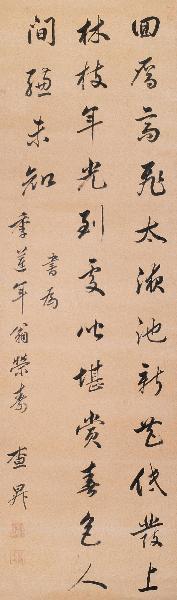 回雁高飛太液池新花低發上
林枝年光到處皆堪賞春色人
間總未知
書爲
季年翁榮壽
查昇